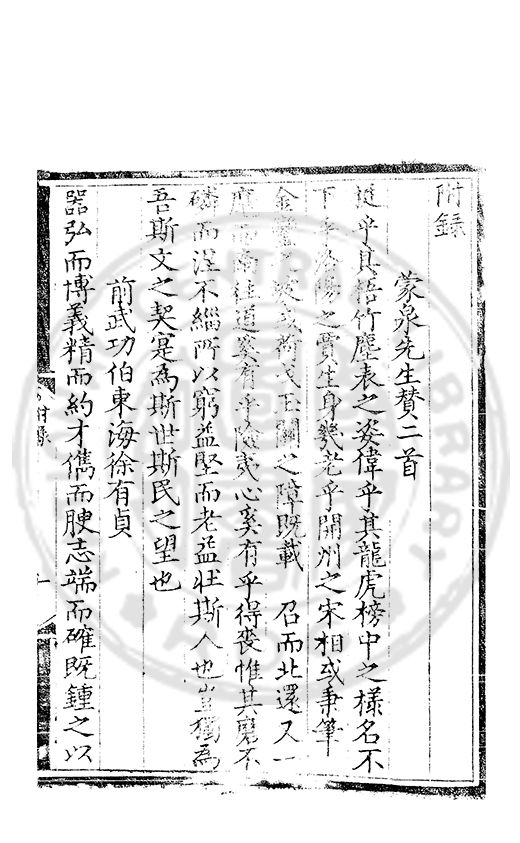 附録
蒙泉先生賛二首
挺乎其梧竹塵表之姿偉乎其龍虎榜中之樣名不
下乎洛陽之賈生身幾老乎開州之宋相或秉筆
金鑾之坡或荷戈玉關之障既載 召而北還又一
麾而南往道奚有乎險夷心奚有乎得喪惟其磨不
磷而湼不緇所以窮益堅而老益壯斯人也豈獨為
吾斯文之契寔為斯世斯民之望也
前武功伯東海徐有貞
器弘而博義精而約才儁而腴志端而確既鍾之以
附録